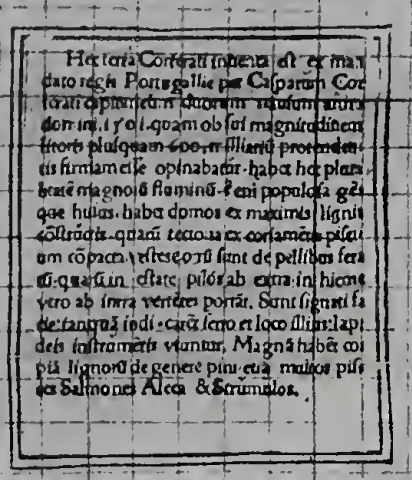 Hec terra Corterati inuenta est ex man
dato regis Portugallie per Casparum Cor
terati capitaneum duorum nauium anno
domini. 1501. quam ob sui magnitudinem
littoris plusquam 600. milliariū protenden
tis firmam esse opinabatur. habet hec plura
magno⁊ū fluminū. & eni populosa gēs
que huius. habet domos ex maximis lignis
cōstructas. quarū tectoria ex coriamētis pisci
um cōpacta. vestes eorū sunt de pellibus fera
rū. quas in estate pilos ab extra. in hieme
vero ab intra vertētes portāt. Sunt signati fa
cie. tanquā indi. carēt ferro et loco illius. lapi
deis instrumētis vtuntur. Magnā habēt co
piā lignorū de genere pini etiā multos pis
ces Salmones Alcca & Strumulos.